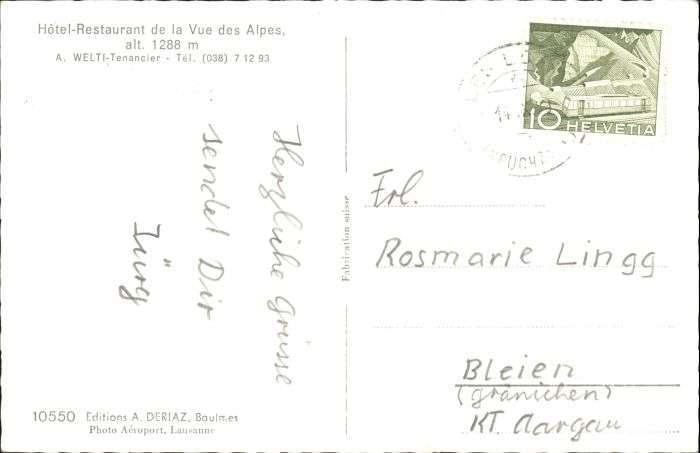 Hôtel-Restaurant de la Vue des Alpes,
alt. 1288 m
A. WELTI-Tenancier - Tél. (038) 7 12 93
Herzliche Grüsse
sendet Dir
Jürg
10550 Editions A. DERIAZ, Baulmes
Photo Aéroport, Lausanne
Fabrication suisse
10 HELVETIA
Frl.
Rosmarie Lingg
Bleien
(gränichen)
KT. Aargau